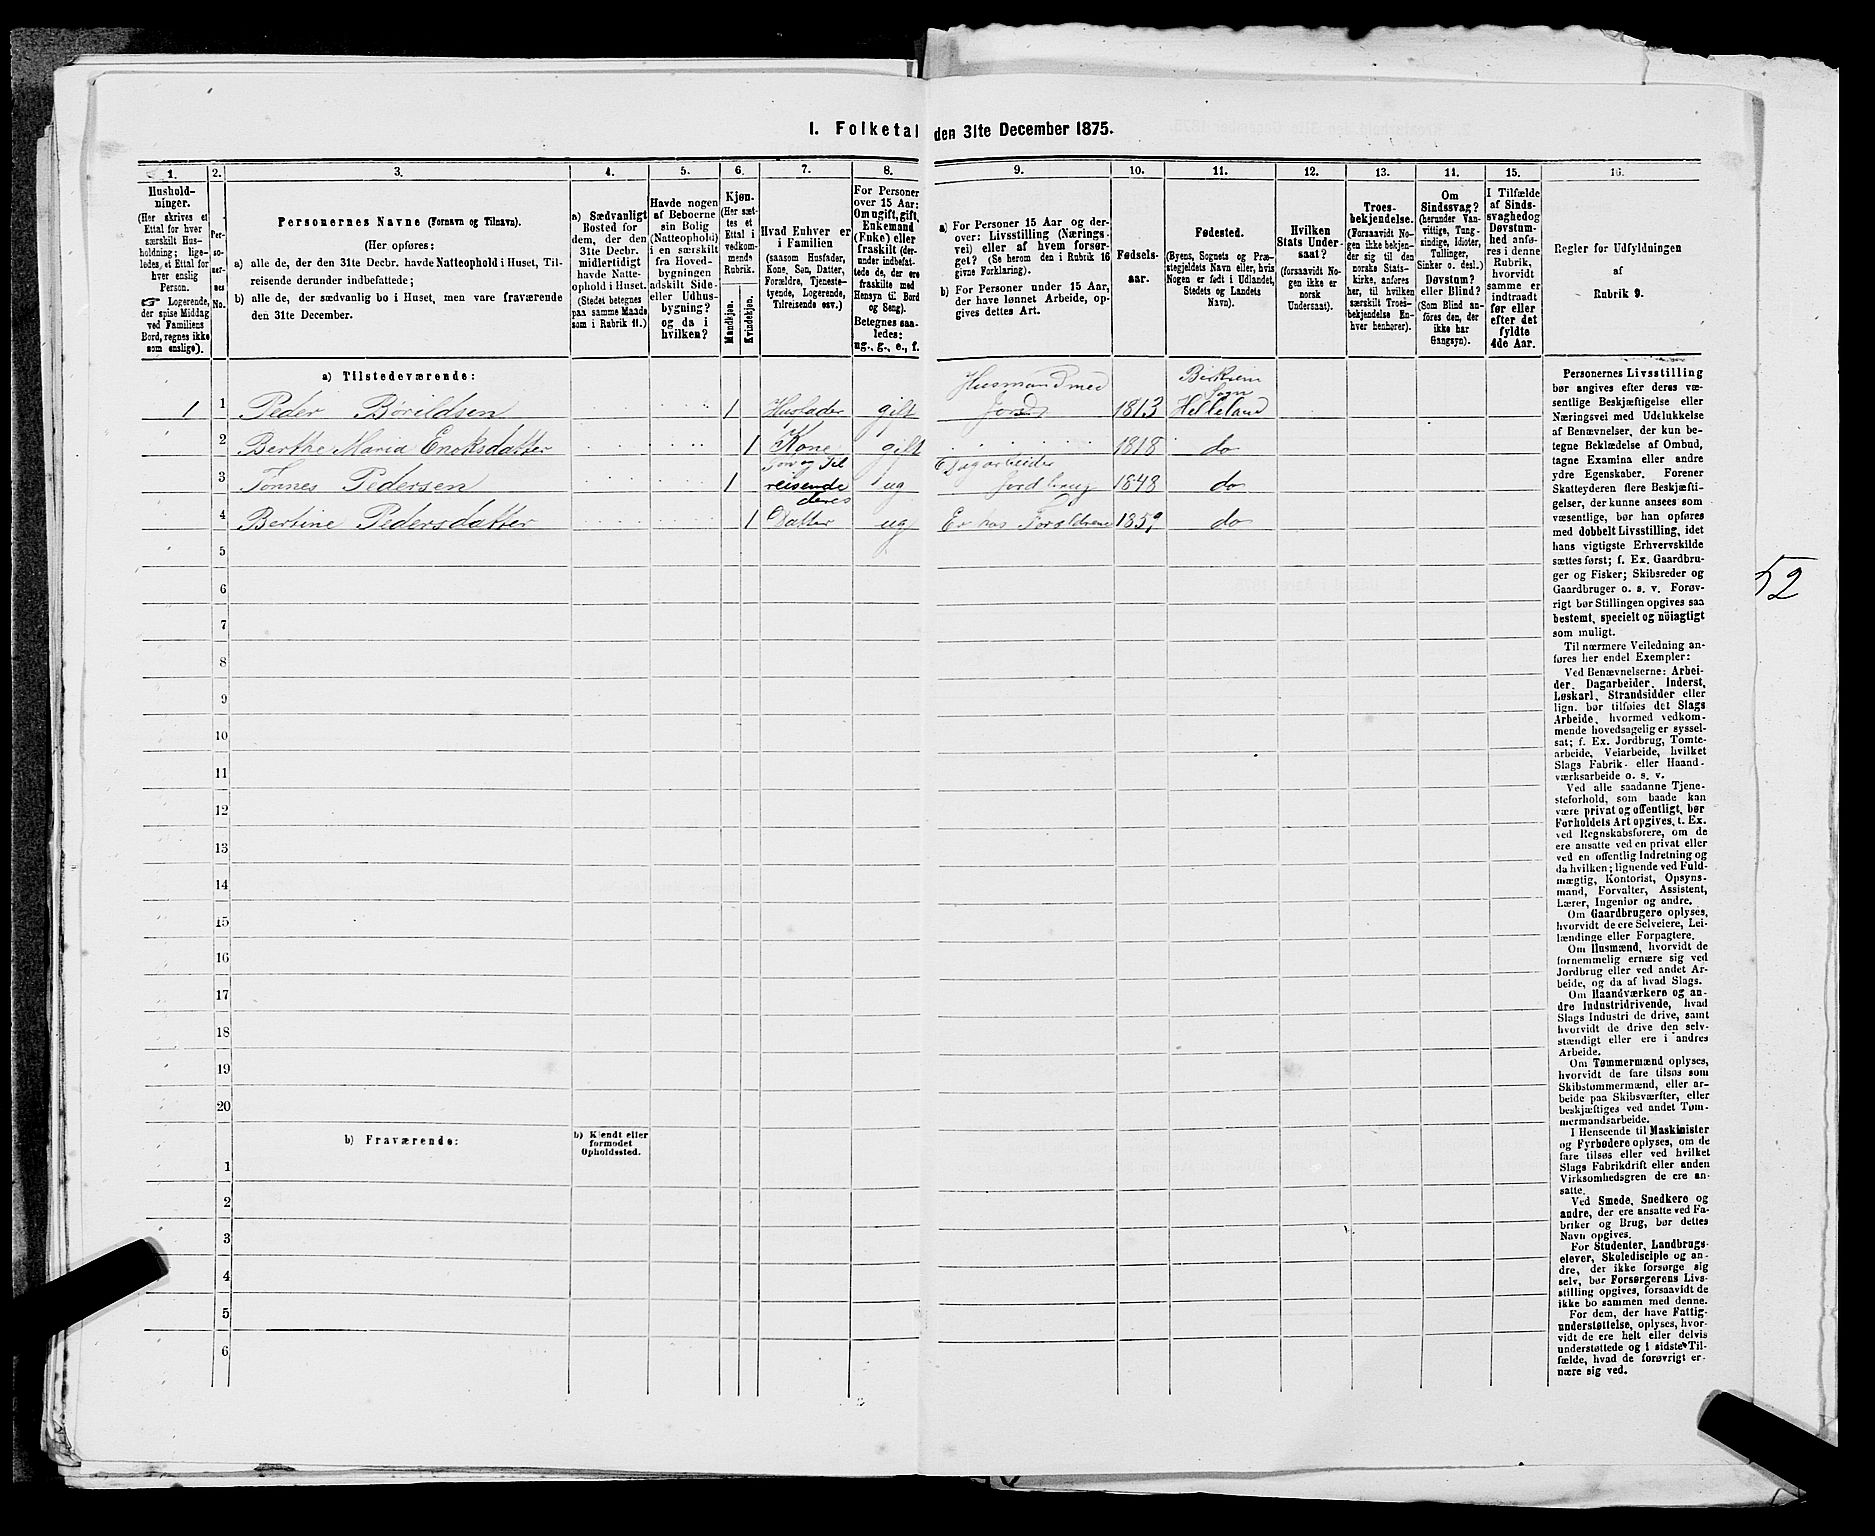 I. Folketal den 31te December 1875.
1. 2. 3. 4. 5. 6. 7. 8. 9. 10. 11. 12. 13. 14. 15. 16.
Husholdninger.
(Her skrives et
Ettal for hver
særskilt Husholdning;
ligeledes et Ettal for
hver enslig
Person.
☞ Logerende,
der spise Middag
ved Familiens
Bord, regnes ikke
som enslige).
Personernes No.
Personernes Navne (Fornavn og Tilnavn).
(Her opføres:
a) alle de, der den 31te Decbr. havde Natteophold i Huset, Tilreisende derunder indbefattede;
b) alle de, der sædvanlig bo i Huset, men vare fraværende
den 31te December.
a) Sædvanligt
Bosted for
dem, der den
31te Decbr.
midlertidigt
havde Natteophold
i Huset.
(Stedet betegnes
paa samme Maade
som i Rubrik 11.)
Havde nogen
af Beboerne
sin Bolig
(Natteophold)
i en særskilt
fra Hovedbygningen
adskilt Side-
eller Udhusbygning?
og da i
hvilken?
Kjøn.
(Her sættes et
Ettal i
vedkommende
Rubrik.
Mandkjøn.
Kvindekjøn.
Hvad Enhver er
i Familien
(saasom Husfader,
Kone, Søn, Datter,
Forældre, Tjenestetyende,
Logerende,
Tilreisende osv.)
For Personer
over 15 Aar:
Om ugift, gift,
Enkemand
(Enke) eller
fraskilt (derunder
indbefattede
de, der ere
fraskilte med
Hensyn til Bord
og Seng).
Betegnes saaledes:
ug., g., e., f.
a) For Personer 15 Aar og derover:
Livsstilling (Næringsvei)
eller af hvem forsørget?
(Se herom den i Rubrik 16
givne Forklaring).
b) For Personer under 15 Aar,
der have lønnet Arbeide, opgives
dettes Art.
Fødselsaar.
Fødested.
(Byens, Sognets og Præstegjeldets
Navn eller, hvis
Nogen er født i Udlandet,
Stedets og Landets
Navn).
Hvilken
Stats Undersaat?
(forsaavidt Nogen
ikke er
norsk
Undersaat).
Troesbekjendelse.
(Forsaavidt Nogen
ikke bekjender
sig til den
norske Statskirke,
anføres
her, til hvilken
særskilt Troesbekjendelse
Enhver henhører).
Om
Sindssvag?
(herunder Vanvittige,
Tungsindige,
Idioter,
Tullinger,
Sinker o. desl.)
Døvstum?
eller Blind?
(Som Blind anføres
den, der
ikke har
Gangsyn).
I Tilfælde
af Sindssvaghed og
Døvstumhed
anføres
i denne
Rubrik,
hvorvidt
samme er
indtraadt
før eller
efter det
fyldte
4de Aar.
Regler for Udfyldningen
af
Rubrik 9.
a) Tilstedeværende:
1 1 Peder Børildsen 1 Husfader gift Husmand med Jord 1813 Birkrem Sogn Helleland
2 Berthe Maria Enoksdatter 1 Kone gift 1818 do
3 Tønnes Pedersen 1 Søn og Tilreisende ug Dagarbeider Jordbrug 1848 do
4 Bertine Pedersdatter 1 deres Datter ug Er hos Forældrene 1859 do
5
6
7
8
9
10
11
12
13
14
15
16
17
18
19
20
b) Fraværende:
b) Kjendt eller
formodet
Opholdssted.
1
2
3
4
5
6
Personernes Livsstilling
bør angives efter deres væsentlige
Beskjæftigelse eller
Næringsvei med Udelukkelse
af Benævnelser, der kun betegne
Beklædelse af Ombud,
tagne Examina eller andre
ydre Egenskaber. Forener
Skatteyderen flere Beskjæftigelser,
der kunne ansees som
væsentlige, bør han opføres
med dobbelt Livsstilling, idet
hans vigtigste Erhvervskilde
sættes først; f. Ex. Gaardbruger
og Fisker; Skibsreder og
Gaardbruger o. s. v. Forøvrigt
bør Stillingen opgives saa
bestemt, specielt og nöiagtigt
som muligt.
Til nærmere Veiledning anføres
her endel Exempler:
Ved Benævnelserne: Arbeider,
Dagarbeider, Inderst,
Løskarl, Strandsidder eller
lign. bør tilføies det Slags
Arbeide, hvormed vedkommende
hovedsagelig er sysselsat;
f. Ex. Jordbrug, Tomtearbeide,
Veiarbeide, hvilket
Slags Fabrik- eller Haandværksarbeide
o. s. v.
Ved alle saadanne Tjenesteforhold,
som baade kan
være privat og offentligt, bør
Forholdets Art opgives, t. Ex.
ved Regnskabsførere, om de
ere ansatte ved en privat eller
ved en offentlig Indretning og
da hvilken; lignende ved Fuldmægtig,
Kontorist, Opsynsmand,
Forvalter, Assistent,
Lærer, Ingeniør og andre.
Om Gaardbrugere oplyses,
hvorvidt de ere Selveiere, Leilændinge
eller Forpagtere.
Om Husmænd, hvorvidt de
fornemmelig ernære sig ved
Jordbrug eller ved andet Arbeide,
og da af hvad Slags.
Om Haandværkere og andre
Industridrivende, hvad
Slags Industri de drive, samt
hvorvidt de drive den selvstændigt
eller ere i andres
Arbeide.
Om Tømmermænd oplyses,
hvorvidt de fare tilsøs som
Skibstømmermænd, eller arbeide
paa Skibsværfter, eller
beskjæftiges ved andet Tømmermandsarbeide.
I Henseende til Maskinister
og Fyrbødere oplyses, om de
fare tilsøs eller ved hvilket
Slags Fabrikdrift eller anden
Virksomhedsgren de ere ansatte.
Ved Smede, Snedkere og
andre, der ere ansatte ved Fabriker
og Brug, bør dettes
Navn opgives.
For Studenter, Landbrugselever,
Skoledisciple og andre,
der ikke forsørge sig
selv, bør Forsørgerens Livsstilling
opgives, forsaavidt de
ikke bo sammen med denne.
For dem, der have Fattigunderstøttelse,
oplyses, hvorvidt
de ere helt eller delvis
understøttede og i sidste Tilfælde,
hvad de forøvrigt ernære
sig ved.
52